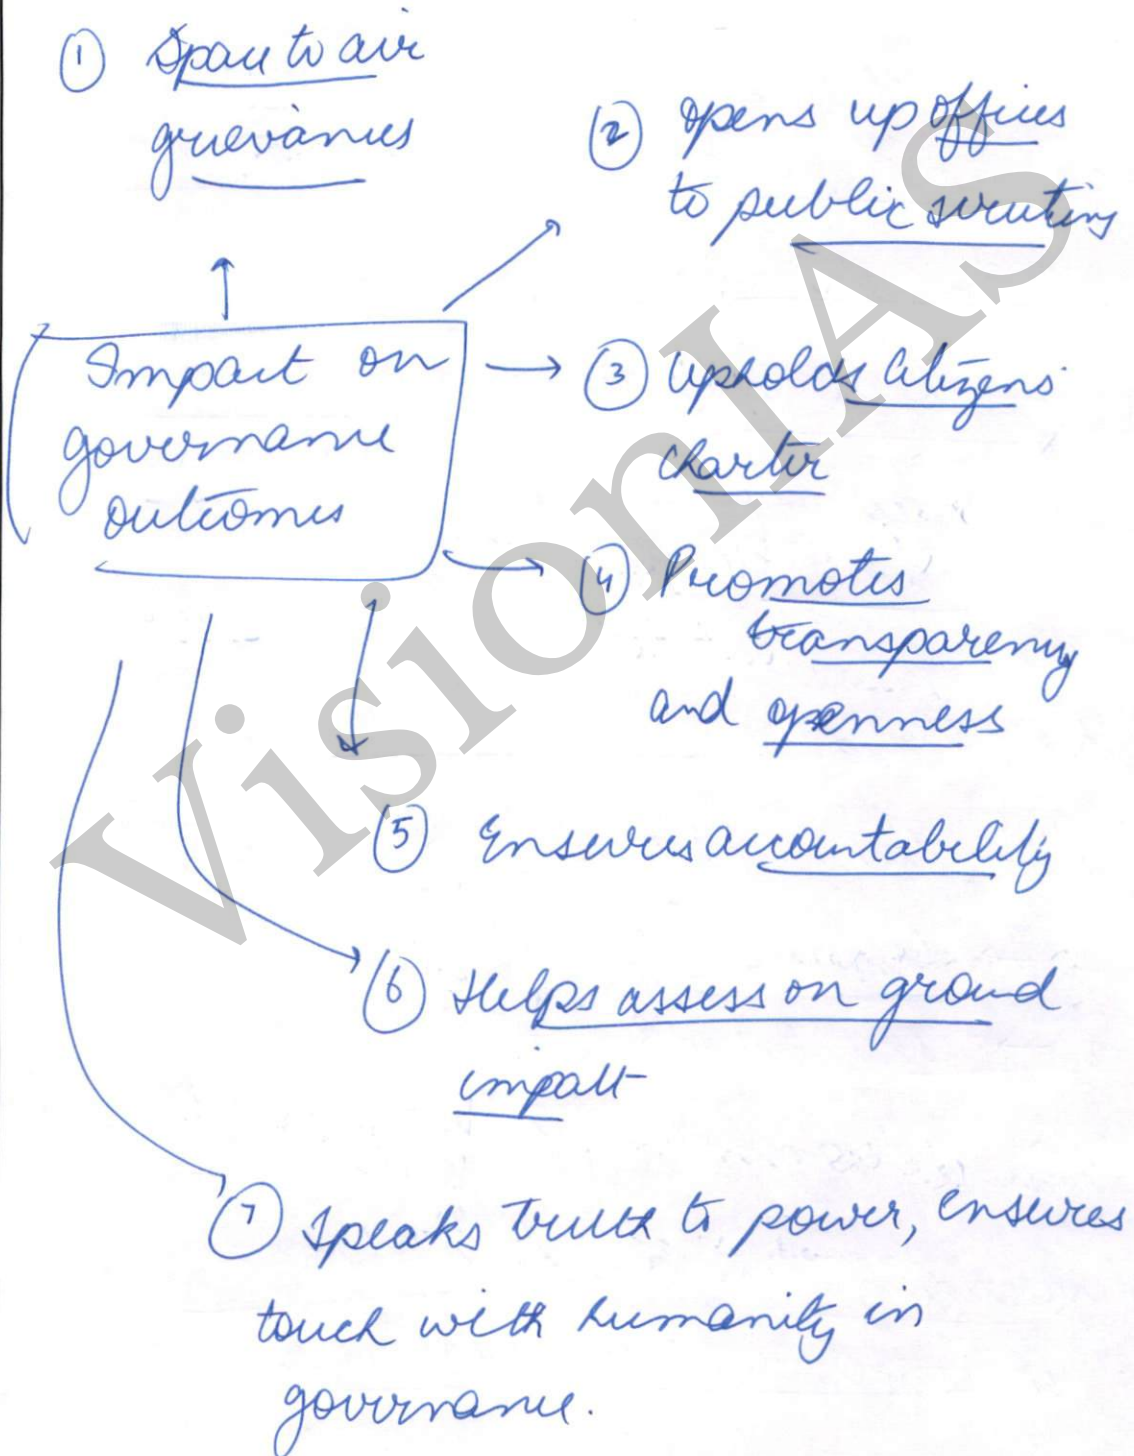 ① Space to air
grievances
② opens up offices
to public scrutiny
Impact on
governance
outcomes
③ Upholds Citizens'
Charter
④ Promotes
transparency
and openness
⑤ Ensures accountability
⑥ Helps assess on ground
impact
⑦ Speaks truth to power, ensures
touch with humanity in
governance.
VisionIAS